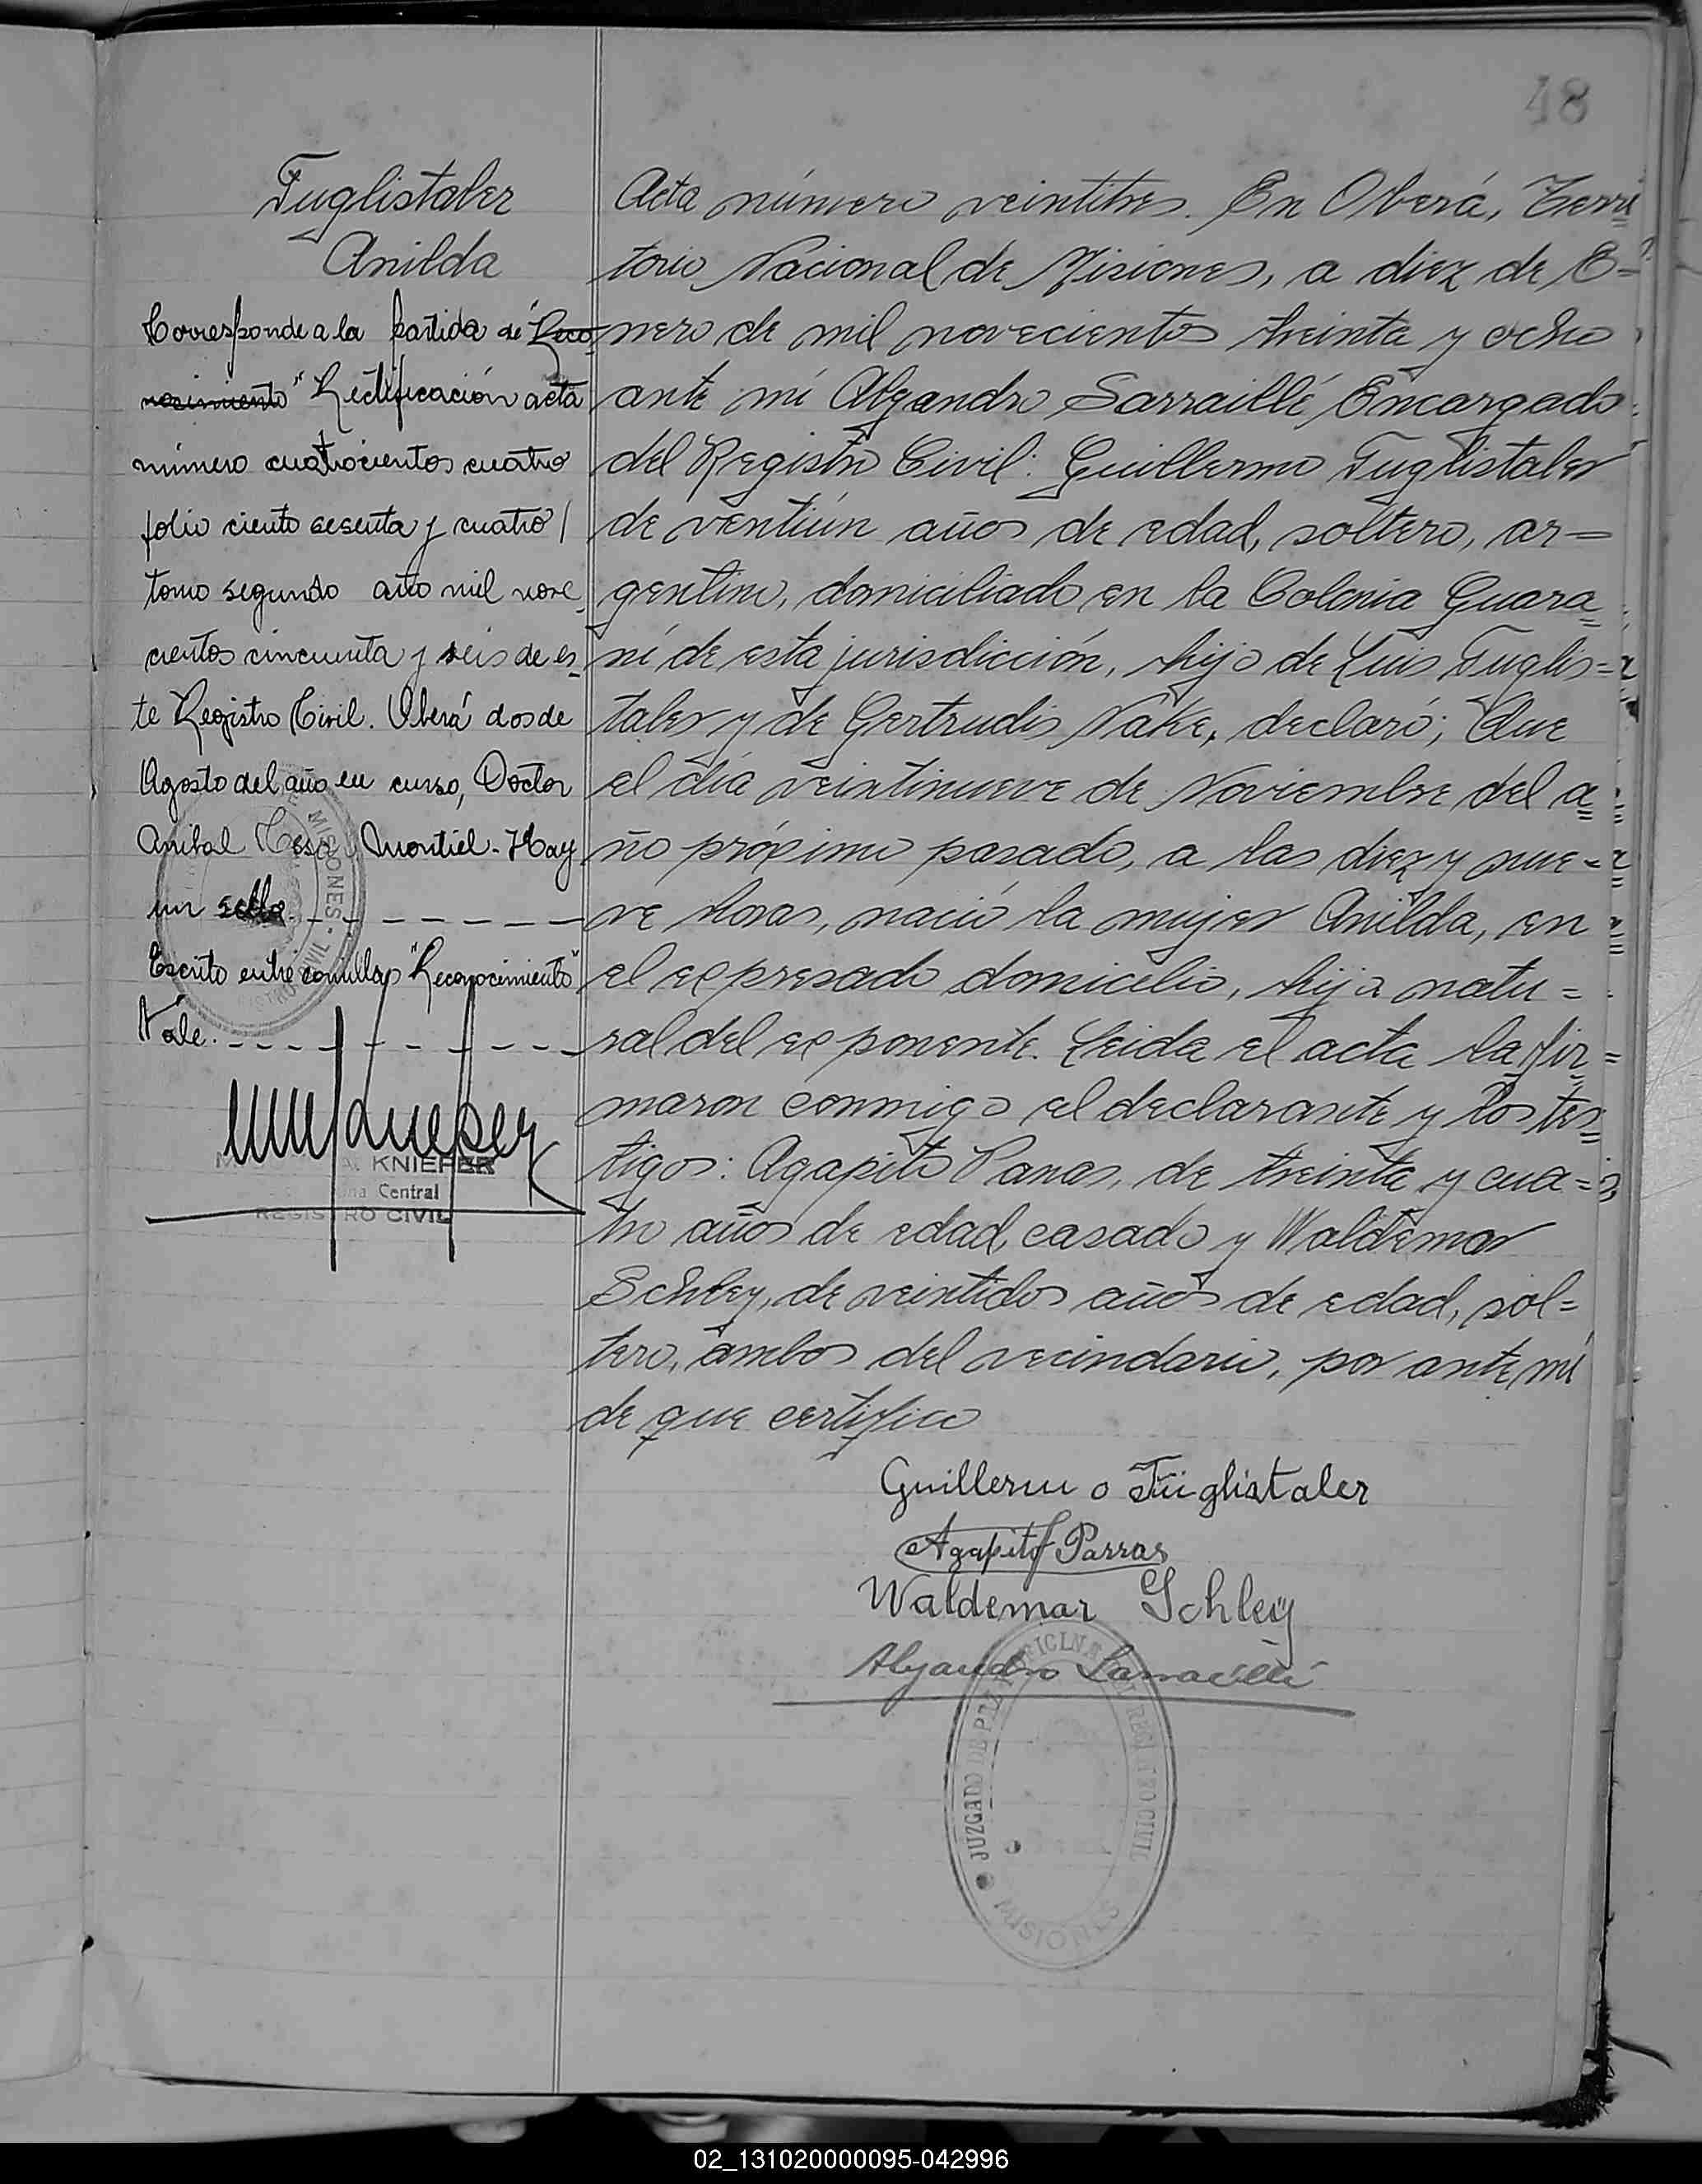 48
Fuglistaler
Anilda
Corresponde a la partida de "Reco-
nocimiento" Rectificación acta
número cuatrocientos cuatro
folio ciento sesenta y cuatro /
tomo segundo año mil nove-
cientos cincuenta y seis de es-
te Registro Civil. Oberá dos de
Agosto del año en curso, Doctor
Anibal Cesar Montiel - Hay
un sello. - - - - - -
Escrito entre comillas "Reconocimiento"
Vale. - - - - - - - - - -
KNIEPER
Central
REGISTRO CIVIL
MISIONES
Acta número veintitres. En Oberá, Terri=
torio Nacional de Misiones, a diez de E=
nero de mil novecientos treinta y ocho
ante mí Alejandro Sarraillé Encargado
del Registro Civil: Guillermo Fuglistaler
de ventiún años de edad, soltero, ar=
gentino, domiciliado en la Colonia Guara=
ní de esta jurisdicción, hijo de Luis Fuglis=
taler y de Gertrudis Nake, declaró; Que
el día veintinueve de Noviembre del a=
ño próximo pasado, a las diez y nue=
ve horas, nació la mujer Anilda, en
el expresado domicilio, hija natu=
ral del exponente. Leida el acta la fir=
maron conmigo el declarante y los tes=
tigos: Agapito Paras, de treinta y cua=
tro años de edad, casado y Waldemar
Schley, de veintidos años de edad, sol=
tero, ambos del vecindario, por ante mí
de que certifico
Guillermo Füglistaler
Agapito Parras
Waldemar Schley
Alejandro Sarraillé
JUZGADO DE PAZ OFICINA REGISTRO CIVIL
MISIONES
02_131020000095-042996